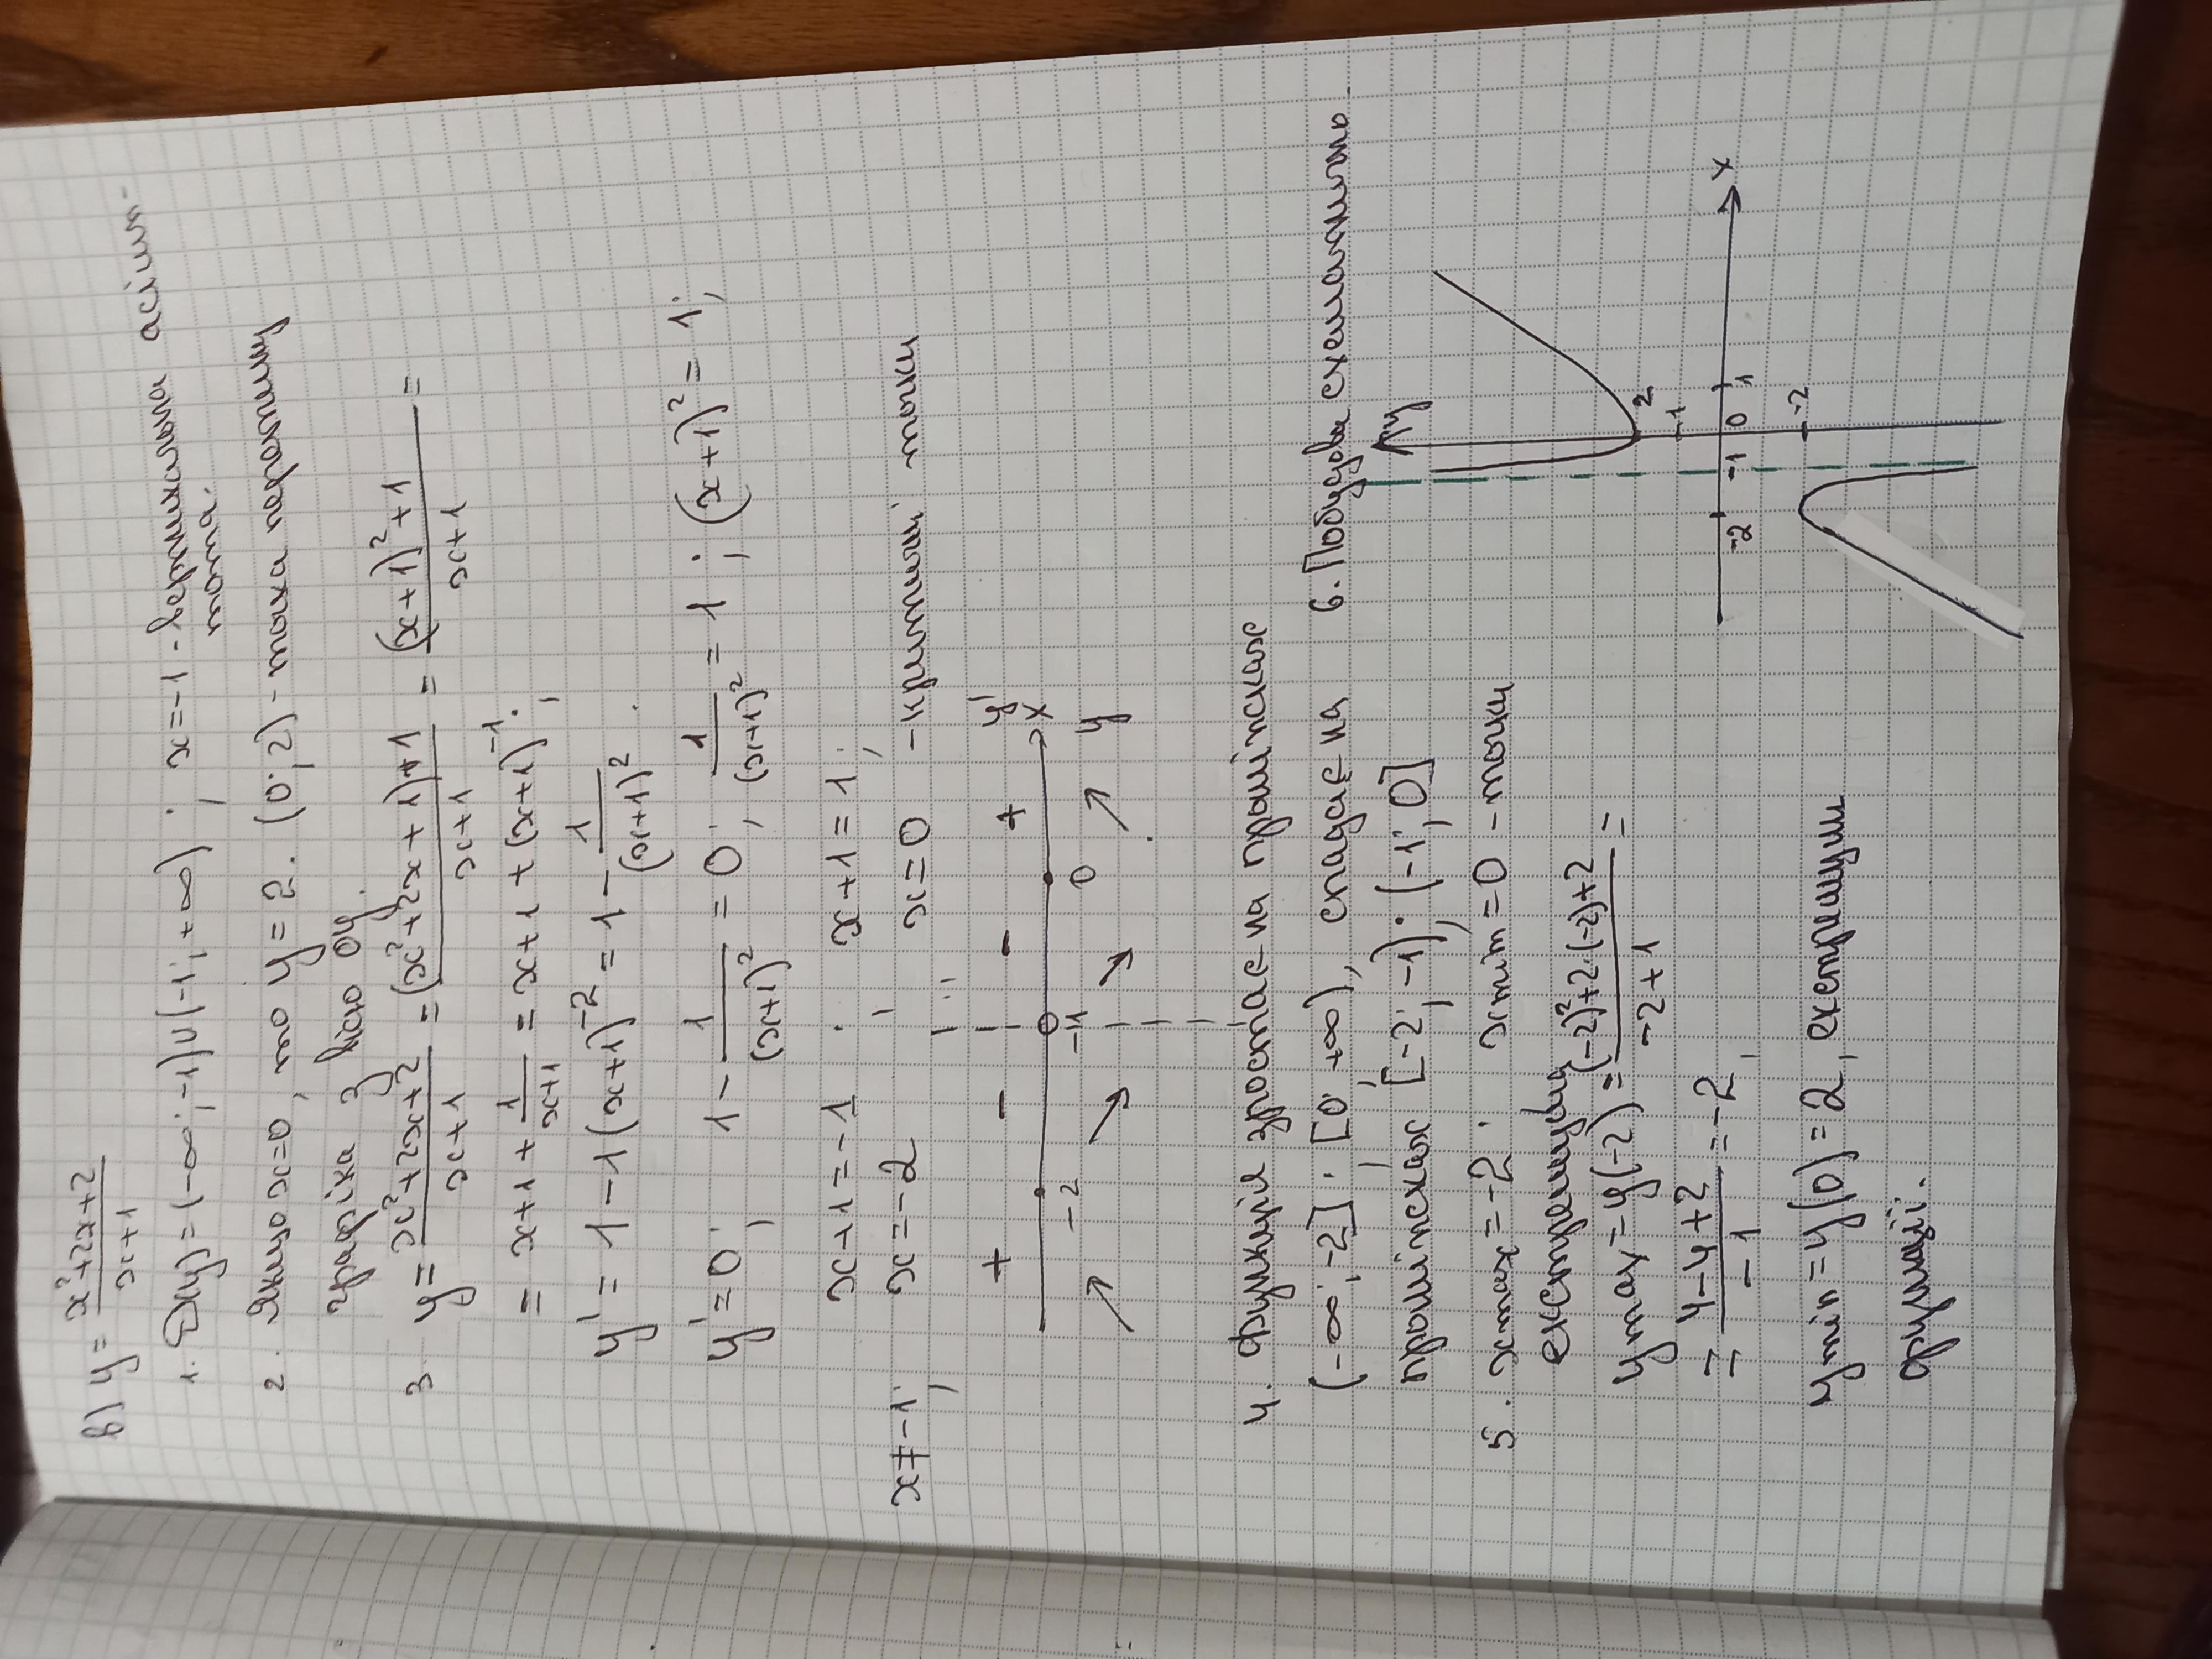 в) y = x²+2x+2 / x+1
1. D(y) = (-∞; -1)∪(-1; +∞); x=-1 - вертикальна асимп-
тота.
2. Якщо x=0, то y=2. (0; 2) - точка перетину
графіка з вісю Oy.
3 y = x²+2x+2 / x+1 = (x²+2x+1)+1 / x+1 = (x+1)²+1 / x+1 =
= x+1 + 1/x+1 = x+1+(x+1)⁻¹;
y' = 1-1(x+1)⁻² = 1 - 1/(x+1)².
y'=0; 1 - 1/(x+1)² = 0; 1/(x+1)² = 1; (x+1)² = 1;
x+1=-1; x+1=1;
x≠-1; x=-2 x=0 - критичні точки
+ - - + y'
-2 -1 0 x
↗ ↘ ↘ ↗ y
4. Функція зростає на проміжках
(-∞; -2]; [0; +∞), спадає на
проміжках [-2; -1); (-1; 0]
5. xmax=-2; xmin=0 - точки
екстремуму
ymax=y(-2) = (-2)²+2·(-2)+2 / -2+1 =
= 4-4+2 / -1 = -2,
ymin=y(0)=2, екстремуми
функції.
6. Побудова схематично.
y
2
1
-2 -1 0 1 x
-2